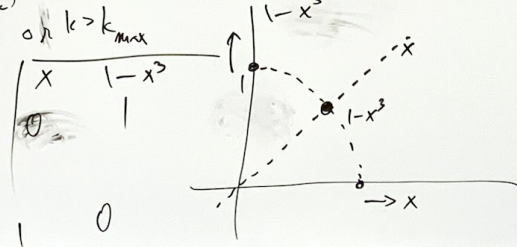 or k > k_max
x 1-x³
0 1
1 0
1-x³
1
x
1-x³
→ x